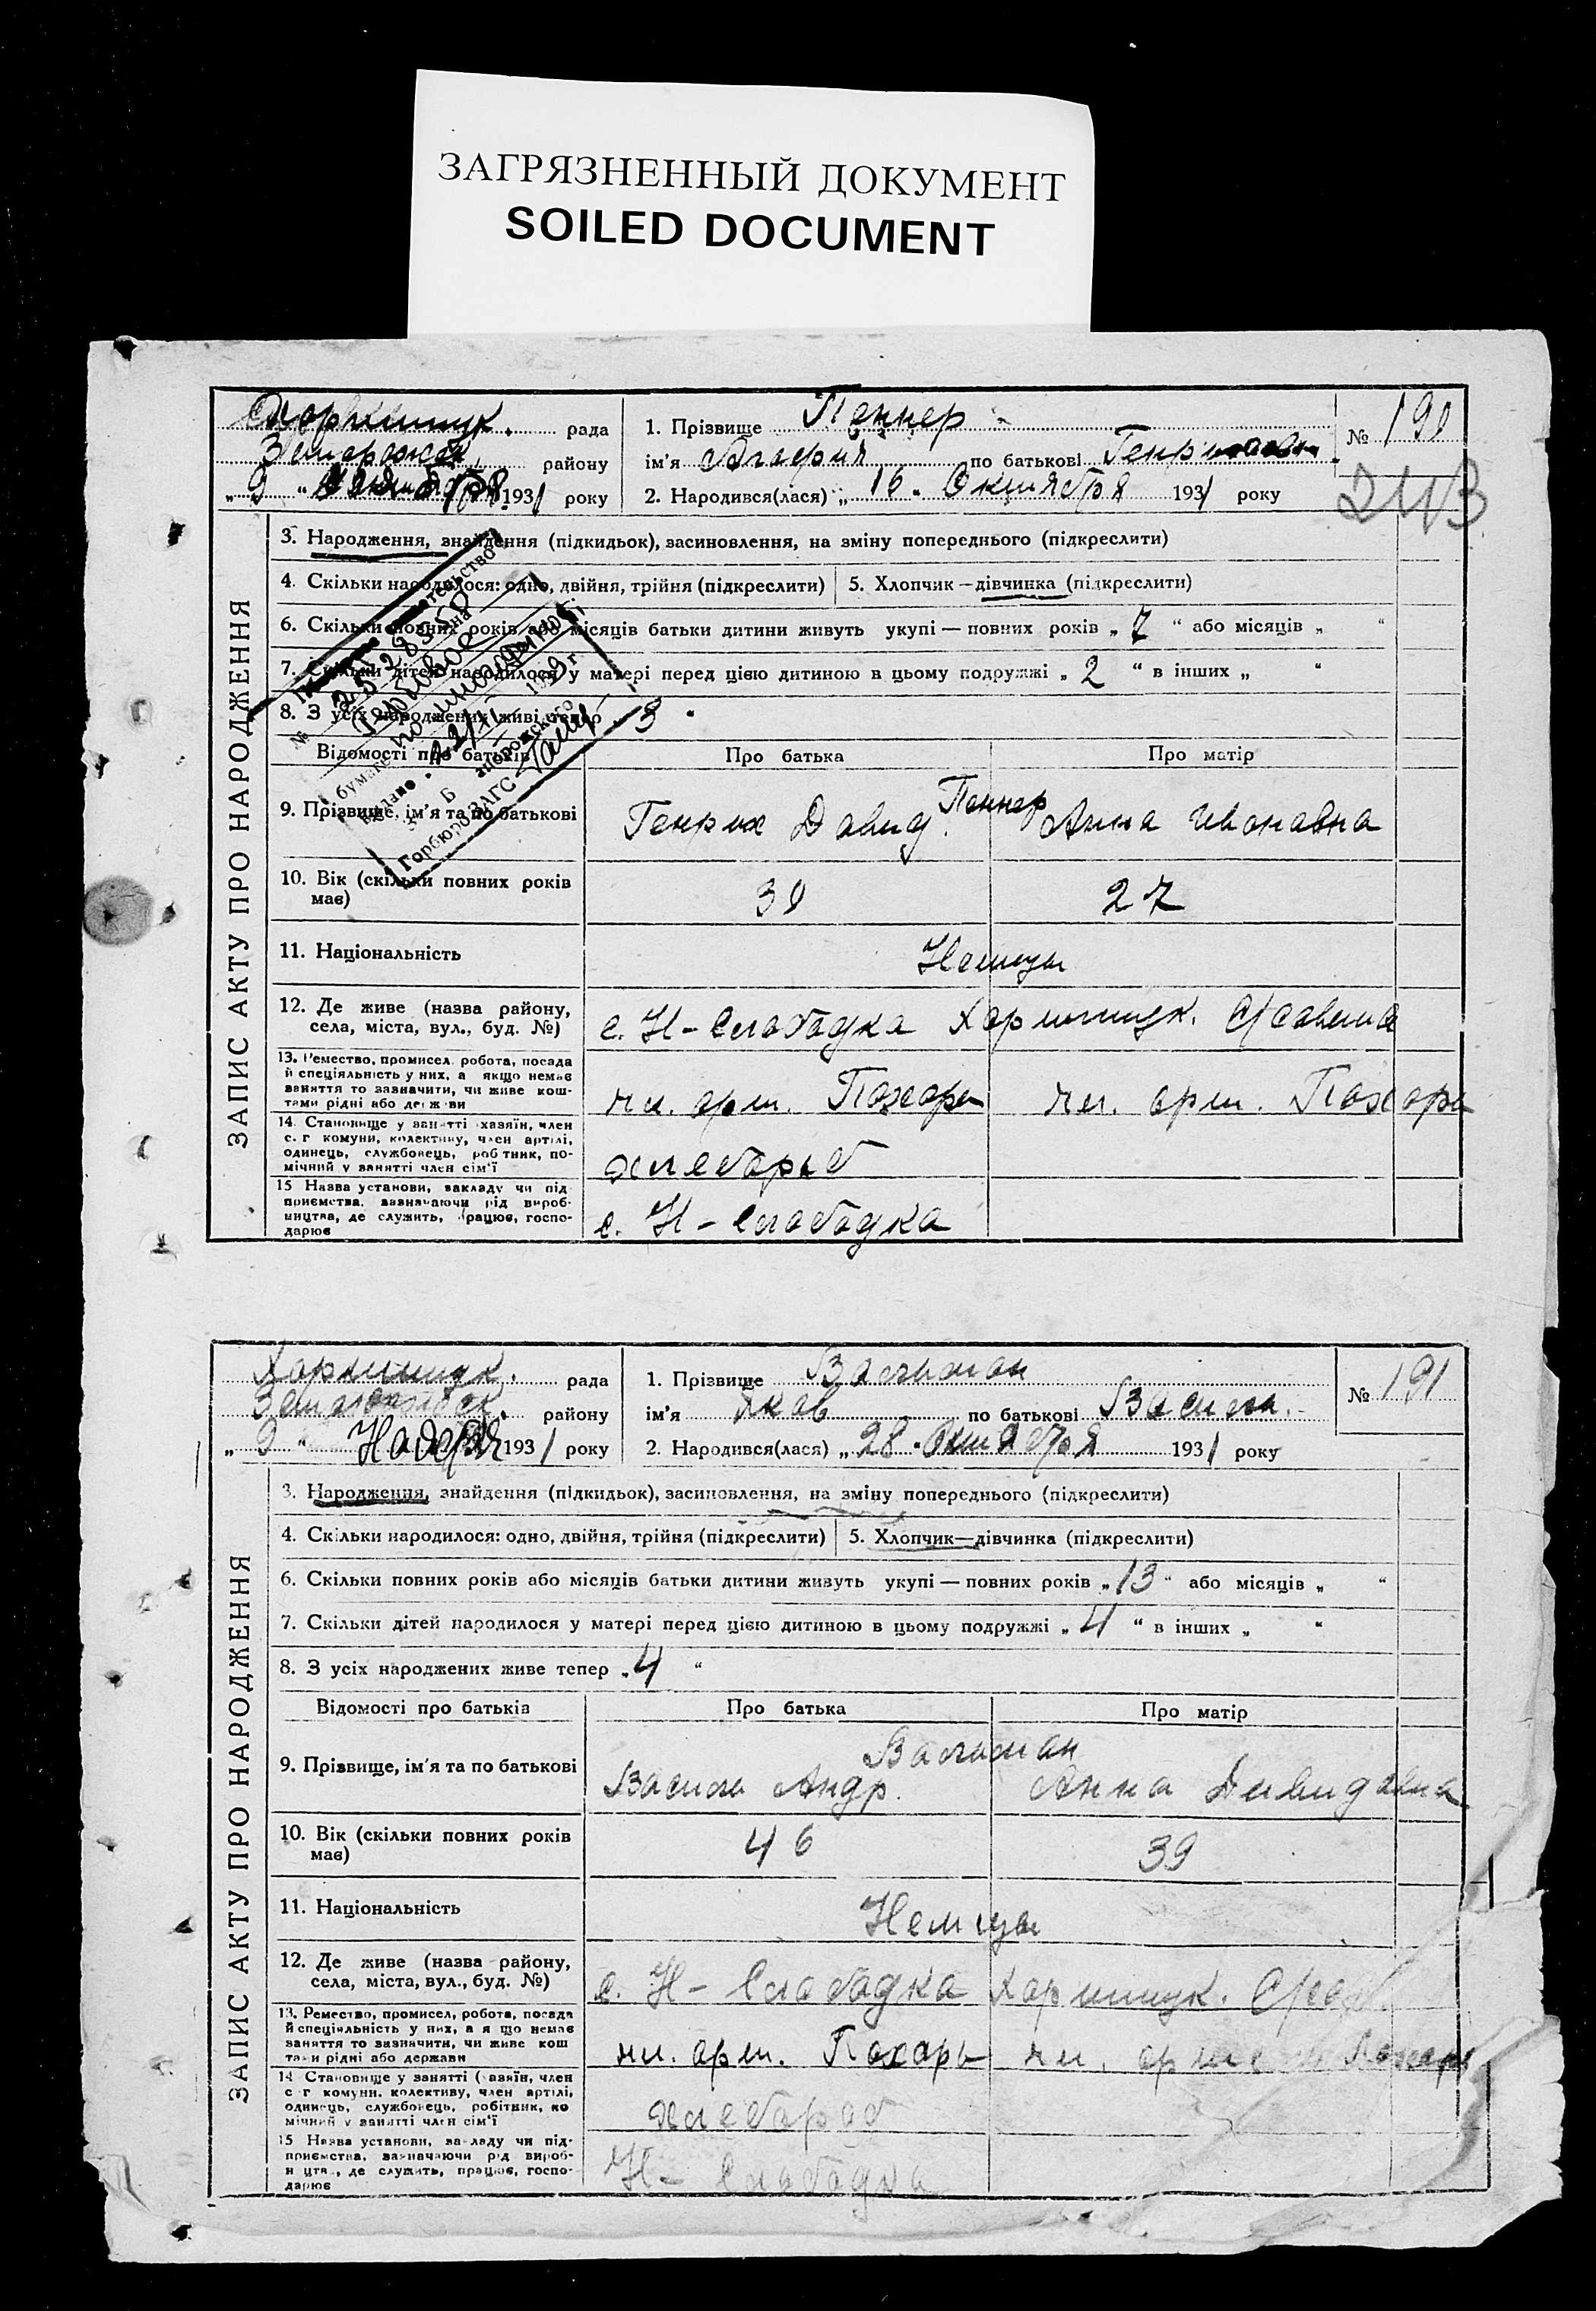 ЗАГРЯЗНЕННЫЙ ДОКУМЕНТ
SOILED DOCUMENT
ЗАПИС АКТУ ПРО НАРОДЖЕННЯ
рада
району
„ 9 “ 1931 року
1. Прізвище Пеннер
ім'я по батькові
2. Народився(лася) „ 16 . Октября 1931 року
№ 190
243
3. Народження, знайдення (підкидьок), засиновлення, на зміну попереднього (підкреслити)
4. Скільки народилося: одно, двійня, трійня (підкреслити) 5. Хлопчик—дівчинка (підкреслити)
6. Скільки повних років або місяців батьки дитини живуть укупі — повних років „ 7 “ або місяців „ “
7. Скільки дітей народилося у матері перед цією дитиною в цьому подружжі „ 2 “ в інших „ “
8. З усіх народжених живі тепер 3
Відомості про батьків Про батька Про матір
9. Прізвище, ім'я та по батькові Генрих Давид. Пеннер Анна Ивановна
10. Вік (скільки повних років має) 27
11. Національність Немцы
12. Де живе (назва району, села, міста, вул., буд. №) с. Н-Слободка
13. Ремество, промисел, робота, посада
й спеціяльність у них, а якщо немає
заняття то зазначити, чи живе кош-
тами рідні або держави
чл. арт. Пахарь чл. арт. Пахарь
14. Становище у занятті хазяїн, член
с.г комуни, колективу, член артілі,
одинець, службовець, робітник, по-
мічний у занятті член сім'ї
хлебороб
15 Назва установи, закладу чи під-
приємства, зазначаючи рід вироб-
ництва, де служить, працює, госпо-
дарює
с. Н-Слободка
Горбюро ЗАГС
ЗАПИС АКТУ ПРО НАРОДЖЕННЯ
рада
району
„ 9 “ Ноября 1931 року
1. Прізвище
ім'я Яков по батькові Васил.
2. Народився(лася) „ 28 . Октября 1931 року
№ 191
3. Народження, знайдення (підкидьок), засиновлення, на зміну попереднього (підкреслити)
4. Скільки народилося: одно, двійня, трійня (підкреслити) 5. Хлопчик—дівчинка (підкреслити)
6. Скільки повних років або місяців батьки дитини живуть укупі — повних років „ 13 “ або місяців „ “
7. Скільки дітей народилося у матері перед цією дитиною в цьому подружжі „ 4 “ в інших „ “
8. З усіх народжених живе тепер „ 4 “
Відомості про батьків Про батька Про матір
9. Прізвище, ім'я та по батькові Васил. Андр. Анна Давидовна
10. Вік (скільки повних років має) 46 39
11. Національність Немцы
12. Де живе (назва району, села, міста, вул., буд. №) с. Н-Слободка
13. Ремество, промисел, робота, посада
й спеціяльність у них, а якщо немає
заняття то зазначити, чи живе кош
тами рідні або держави
чл. арт. Пахарь чл. Пахарь
14 Становище у занятті (хазяїн, член
с г комуни, колективу, член артілі,
одинець, службовець, робітник, по
мічний у занятті член сім'ї
хлебороб
15 Назва установи, закладу чи під-
приємства, зазначаючи рід вироб-
ництва, де служить, працює, госпо-
дарює
Н-Слободка